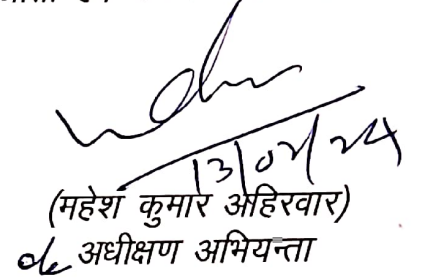 13/02/24
(महेश कुमार अहिरवार)
अधीक्षण अभियन्ता